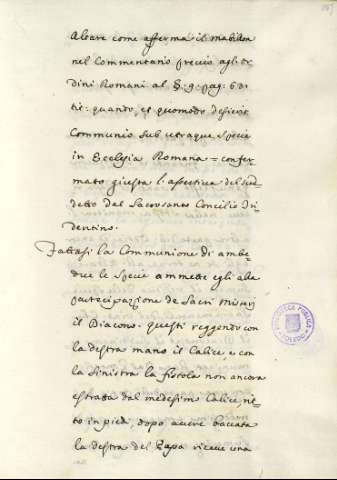 Altare come afferma il Mabillon
nel Commentario previo agli Or-
dini Romani al §: 9. pag: 63:
tit: quando, et quomodo desierit
Communio sub utraque specie
in Ecclesia Romana = confer-
mato giusta l'assertiva del sud-
detto dal Sacrosanto Concilio Tri-
dentino.
Fattasi la Communione di ambe-
due le specie ammette egli alla
partecipazione de Sacri Misterj
il Diacono. questi reggendo con
la destra mano il Calice e con
la sinistra la fistola non ancora
estratta dal medesimo Calice, rit-
to in piedi, dopo avere baciata
la destra del Papa riceve una
BIBLIOTECA PUBLICA
TOLEDO